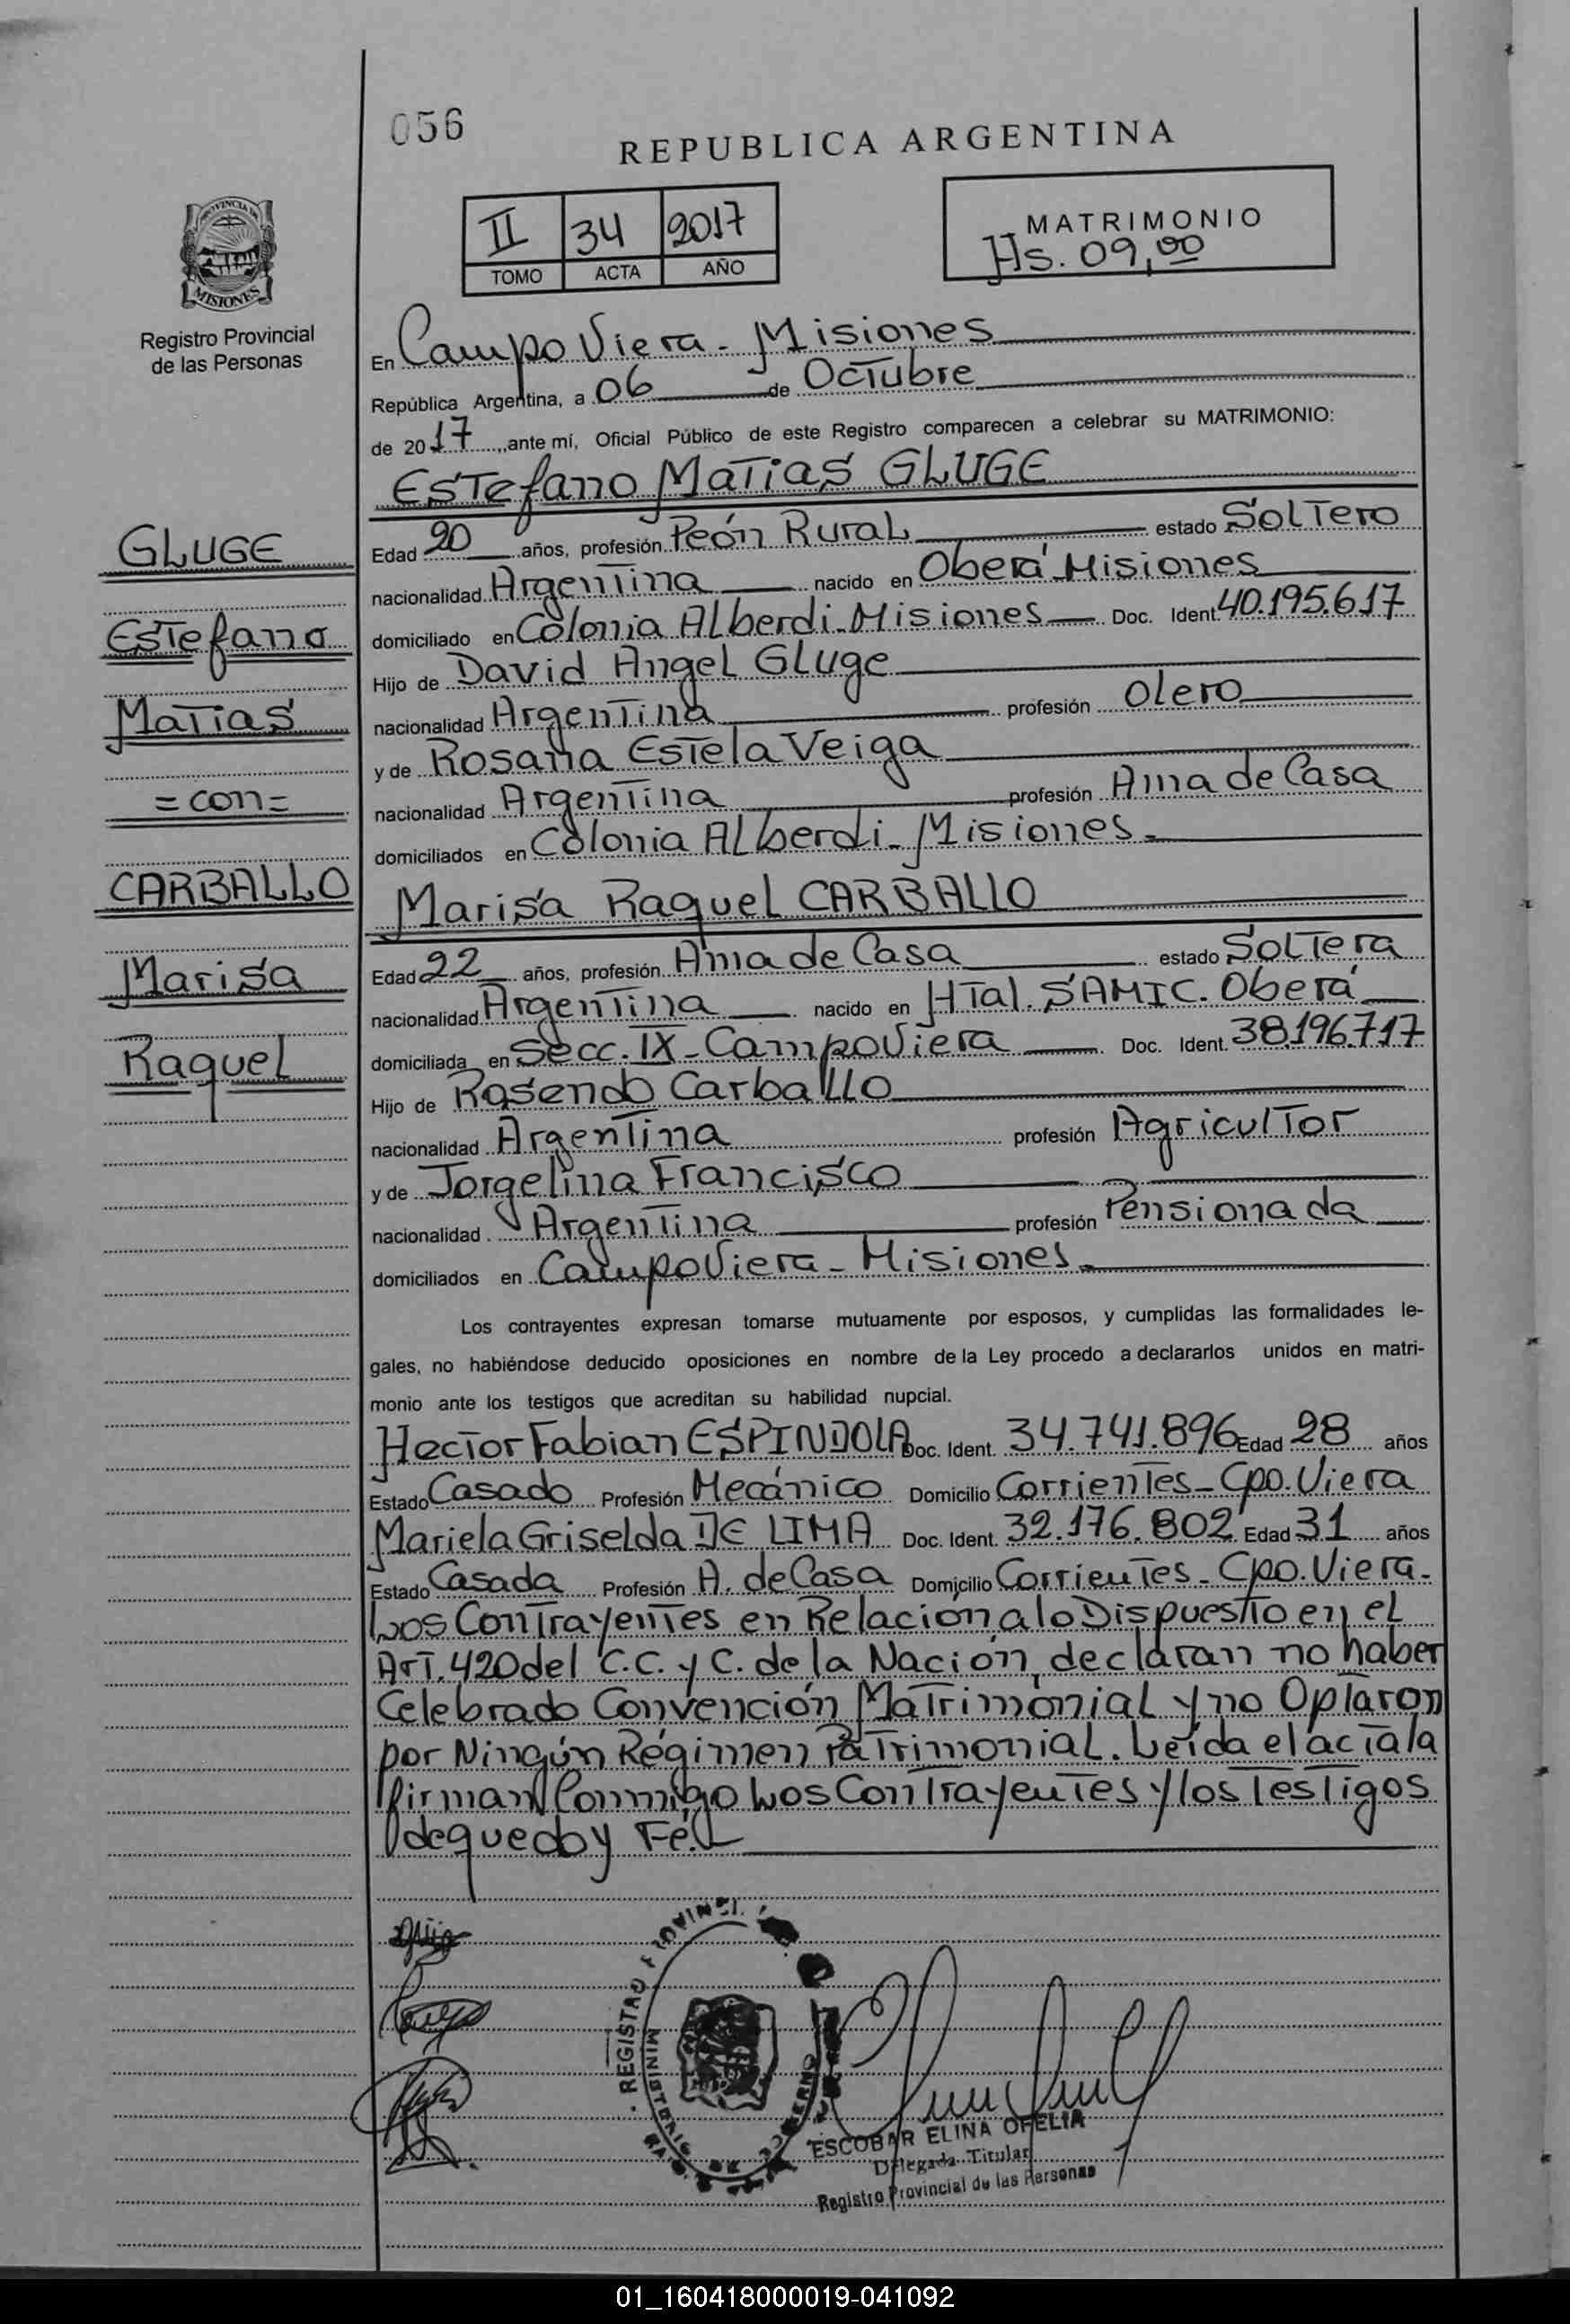 056
REPUBLICA ARGENTINA
PROVINCIA DE
MISIONES
Registro Provincial
de las Personas
II 34 2017
TOMO ACTA AÑO
MATRIMONIO
Hs. 09,00
En Campo Viera - Misiones
República Argentina, a 06 de Octubre
de 2017, ante mí, Oficial Público de este Registro comparecen a celebrar su MATRIMONIO:
Estefano Matias GLUGE
GLUGE
Estefano
Matias
= con =
CARBALLO
Marisa
Raquel
Edad 20 años, profesión Peón Rural estado Soltero
nacionalidad Argentina nacido en Oberá-Misiones
domiciliado en Colonia Alberdi-Misiones Doc. Ident. 40.195.617
Hijo de David Angel Gluge
nacionalidad Argentina profesión Olero
y de Rosana Estela Veiga
nacionalidad Argentina profesión Ama de Casa
domiciliados en Colonia Alberdi - Misiones-
Marisa Raquel CARBALLO
Edad 22 años, profesión Ama de Casa estado Soltera
nacionalidad Argentina nacido en Htal. SAMIC. Oberá
domiciliada en Secc. IX - Campo Viera Doc. Ident. 38.196.717
Hijo de Rosendo Carballo
nacionalidad Argentina profesión Agricultor
y de Jorgelina Francisco
nacionalidad Argentina profesión Pensionada
domiciliados en Campo Viera - Misiones-
Los contrayentes expresan tomarse mutuamente por esposos, y cumplidas las formalidades le-
gales, no habiéndose deducido oposiciones en nombre de la Ley procedo a declararlos unidos en matri-
monio ante los testigos que acreditan su habilidad nupcial.
Hector Fabian ESPINDOLA Doc. Ident. 34.741.896 Edad 28 años
Estado Casado Profesión Mecánico Domicilio Corrientes - Cpo. Viera
Mariela Griselda DE LIMA Doc. Ident. 32.176.802 Edad 31 años
Estado Casada Profesión A. de Casa Domicilio Corrientes - Cpo. Viera.
Los Contrayentes en Relación a lo Dispuesto en el
Art. 420 del C.C. y C. de la Nación, declaran no haber
Celebrado Convención Matrimonial y no Optaron
por Ningún Régimen Patrimonial. Leída el acta la
firman Conmigo Los Contrayentes y los Testigos
de que doy Fe.
REGISTRO PROVINCI
MINISTERIO DE GOBIERNO
ESCOBAR ELINA OFELIA
Delegada Titular
Registro Provincial de las Personas
01_160418000019-041092